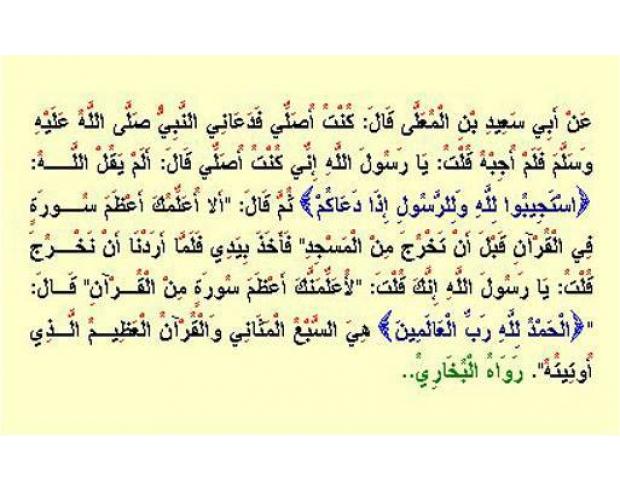 عَنْ أَبِي سَعِيدِ بْنِ الْمُعَلَّى قَالَ: كُنْتُ أُصَلِّي فَدَعَانِي النَّبِيُّ صَلَّى اللَّهُ عَلَيْهِ
وَسَلَّمَ فَلَمْ أُجِبْهُ قُلْتُ: يَا رَسُولَ اللَّهِ إِنِّي كُنْتُ أُصَلِّي قَالَ: أَلَمْ يَقُلْ اللَّــــهُ:
﴿اسْتَجِيبُوا لِلَّهِ وَلِلرَّسُولِ إِذَا دَعَاكُمْ﴾ ثُمَّ قَالَ: "أَلا أُعَلِّمُكَ أَعْظَمَ سُـــورَةٍ
فِي الْقُرْآنِ قَبْلَ أَنْ تَخْرُجَ مِنْ الْمَسْجِدِ" فَأَخَذَ بِيَدِي فَلَمَّا أَرَدْنَا أَنْ نَخْـــرُجَ
قُلْتُ: يَا رَسُولَ اللَّهِ إِنَّكَ قُلْتَ: "لأُعَلِّمَنَّكَ أَعْظَمَ سُورَةٍ مِنْ الْقُـــرْآنِ" قَــالَ:
"﴿الْحَمْدُ لِلَّهِ رَبِّ الْعَالَمِينَ﴾ هِيَ السَّبْعُ الْمَثَانِي وَالْقُرْآنُ الْعَظِيــمُ الَّــذِي
أُوتِيتُهُ". رَوَاهُ الْبُخَارِيُّ..